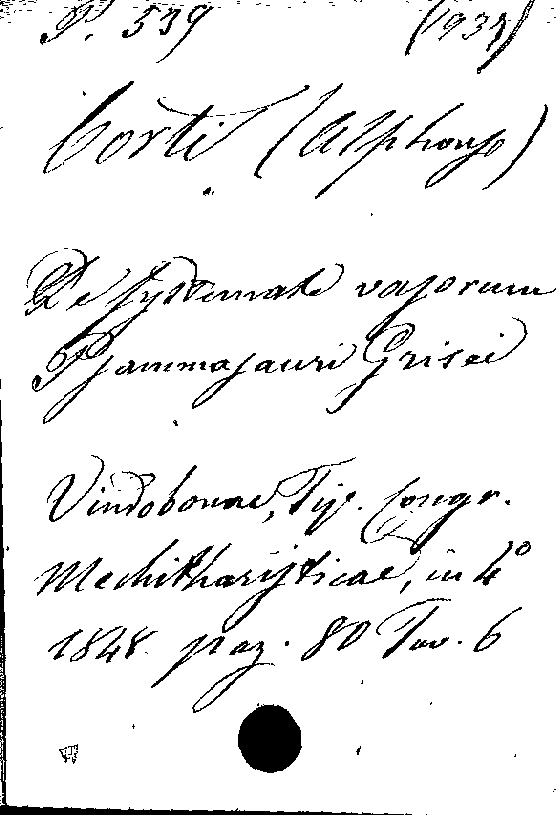 P. 539 (1937)
Corti (Alphonso)
De systemate vasorum
Psammosauri Grisei
Vindobonae, Tip. Congr.
Mechitharisticae, in 4º
1848. pag. 80 Tav. 6